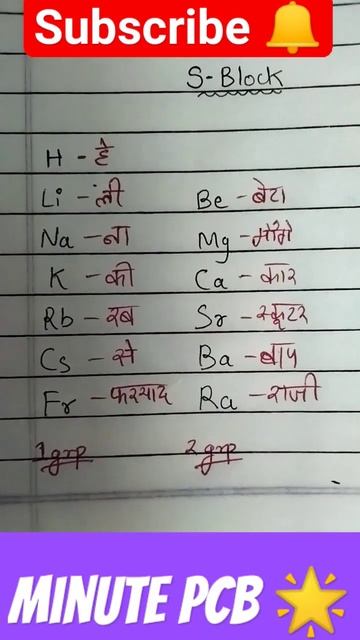 Subscribe
S-Block
H - हे
Li - ली
Be - बेटा
Na - ना
Mg - मांगे
K - की
Ca - कार
Rb - रब
Sr - स्कूटर
Cs - से
Ba - बाप
Fr - फरयाद
Ra - राजी
1 grp
2 grp
MINUTE PCB